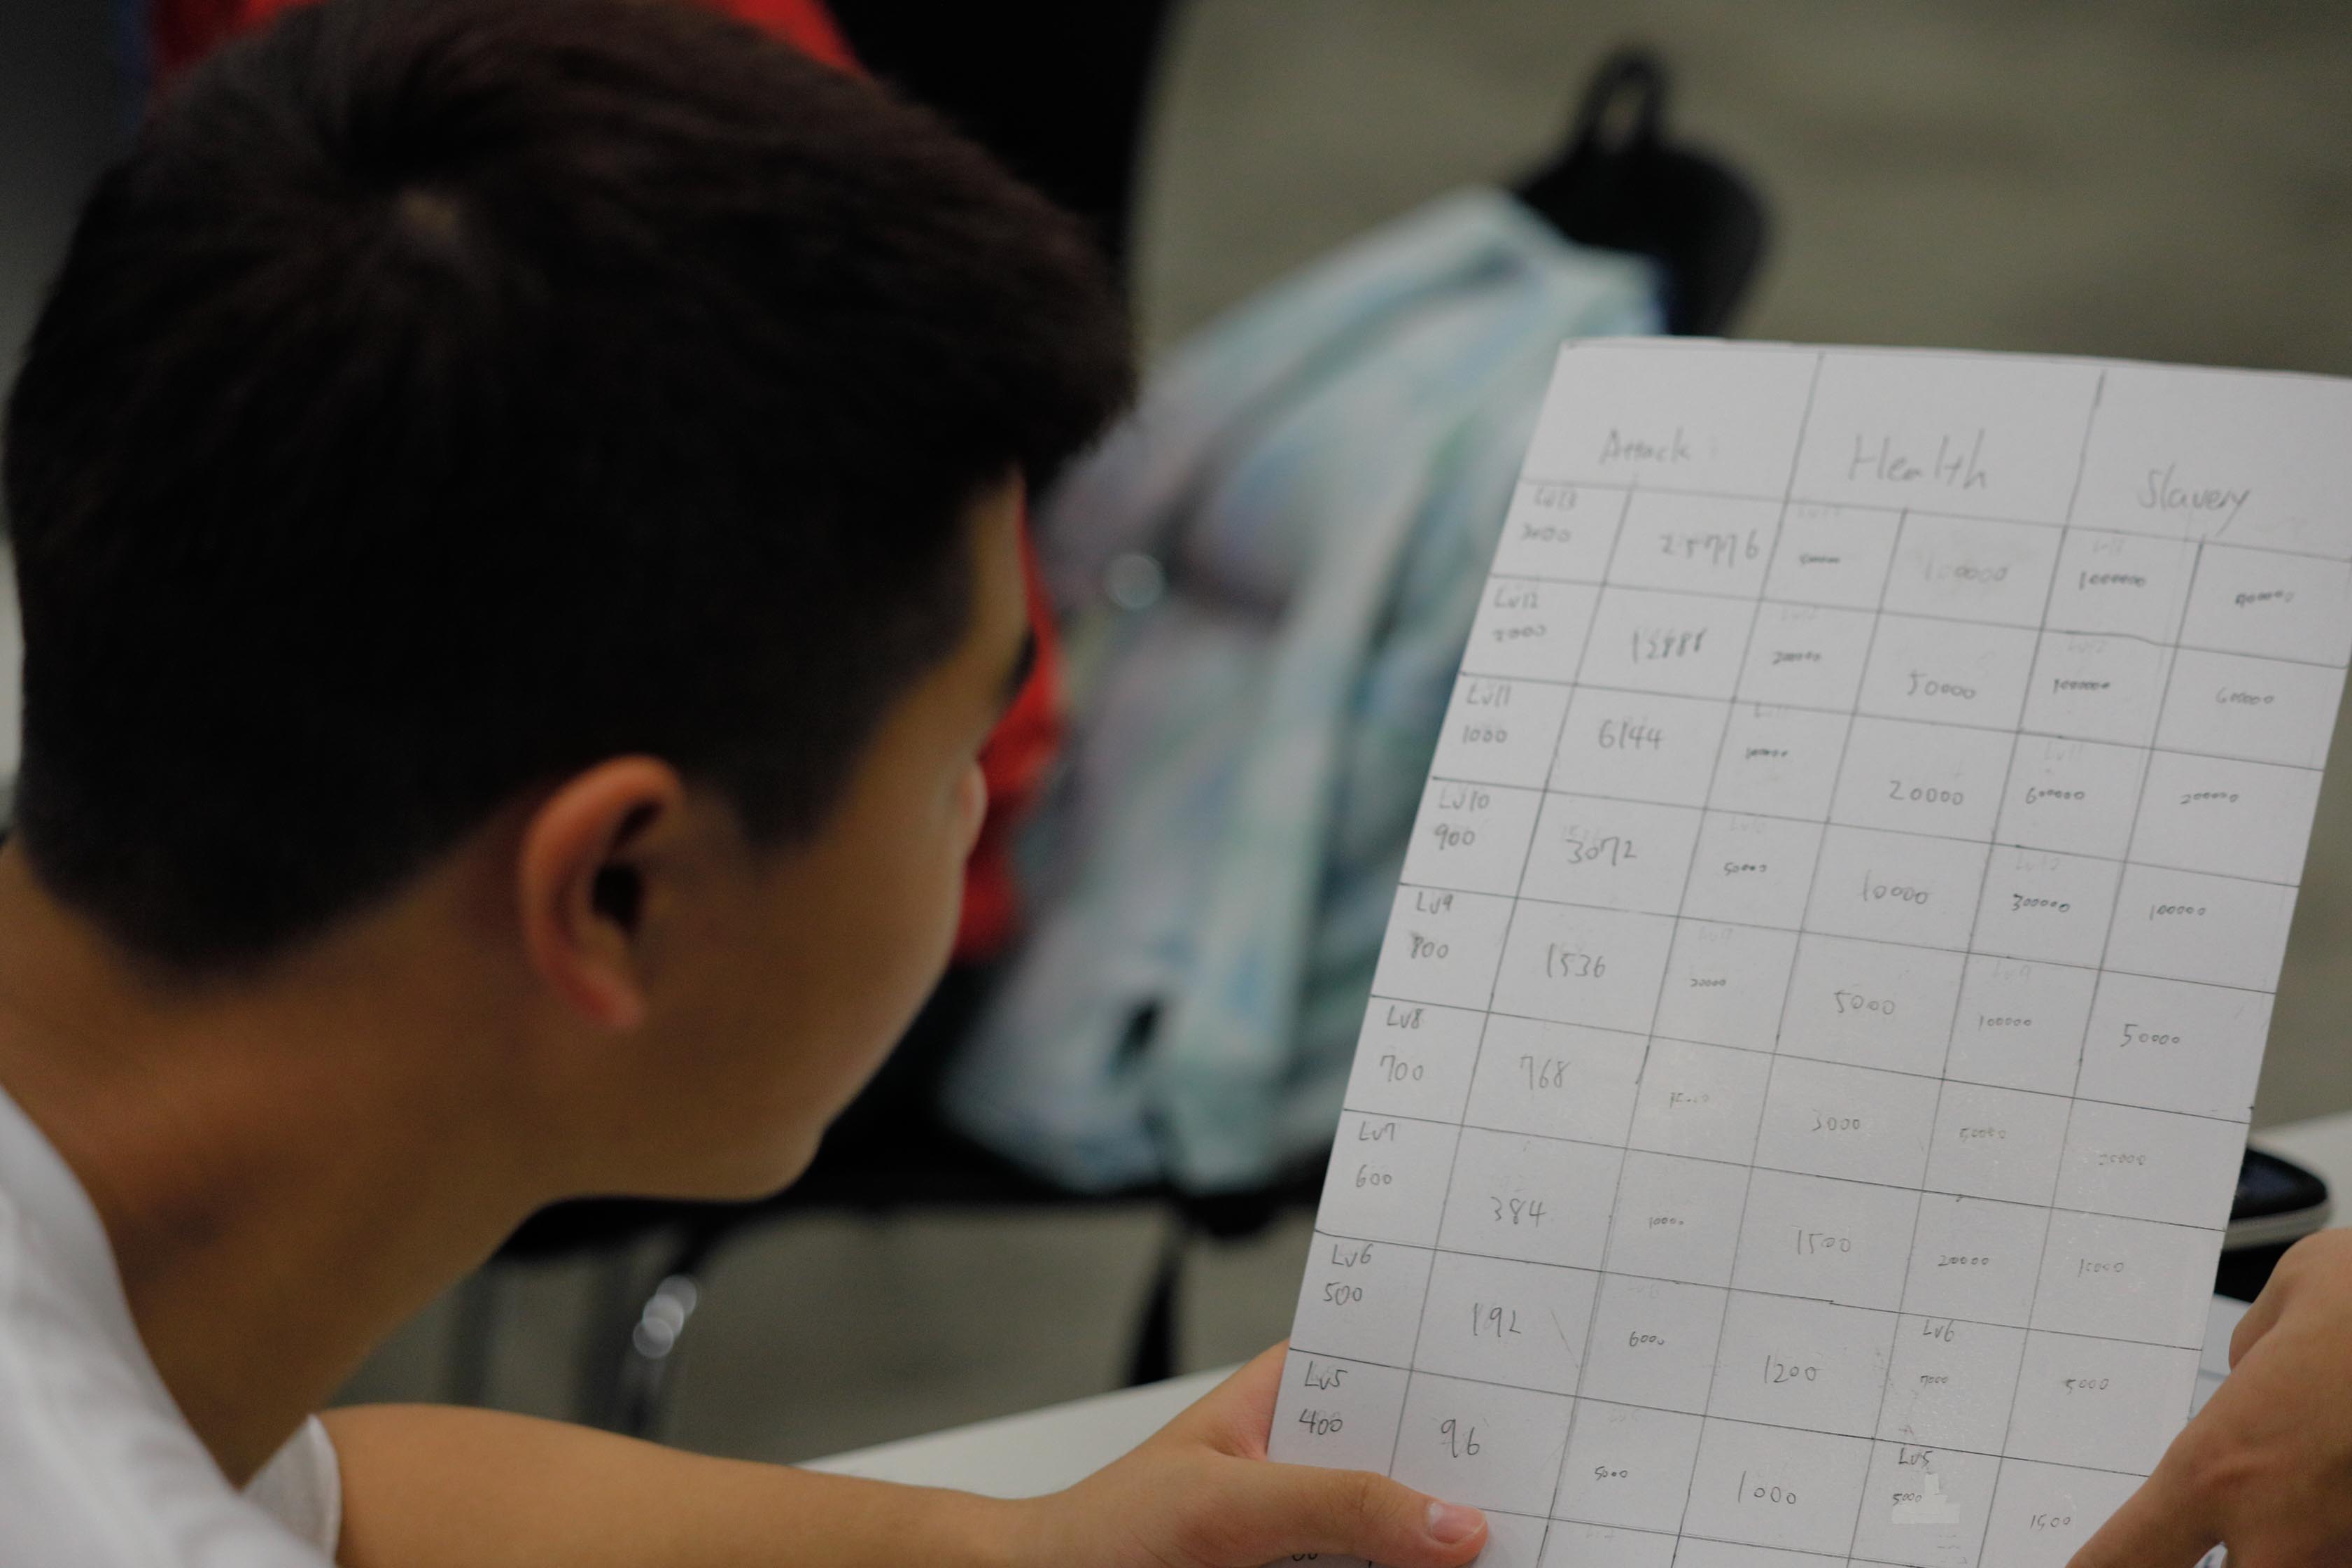 Attack Health Slavery
Lv13
3000 25776 100000 1000000
Lv12
2000 200000 50000 1000000 600000
Lv11
1000 6144 100000 20000 600000 200000
Lv10
900 3072 50000 10000 300000 100000
Lv9
800 1536 20000 5000 100000 50000
Lv8
700 768 3000 50000 20000
Lv7
600 384 10000 1500 20000 10000
Lv6 Lv6
500 192 6000 1200 7000 5000
Lv5 Lv5
400 96 5000 1000 5000 1500